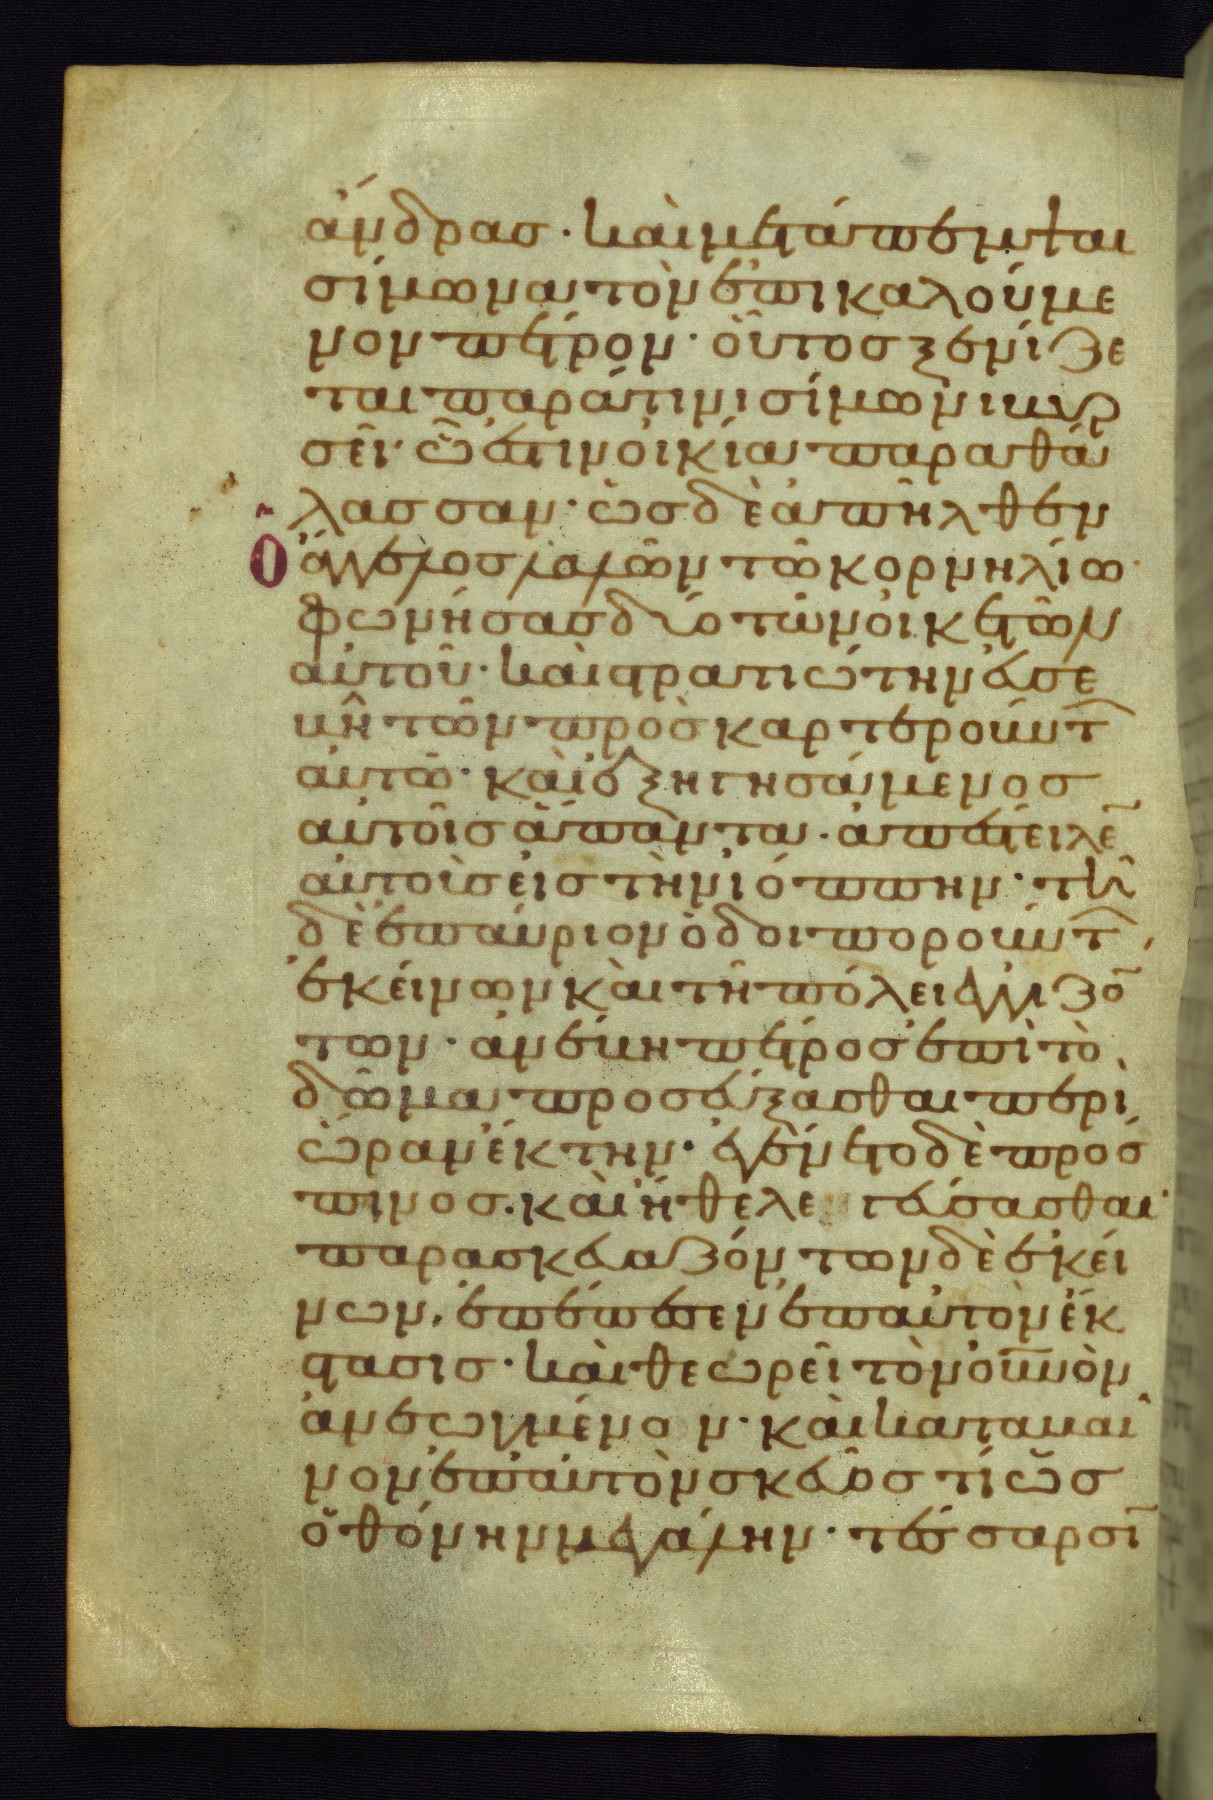 ἄνδρας · καὶ μετάπεμψαι
σίμωνα τὸν ἐπικαλούμε
νον πέτρον · οὗτος ξενίζε
ται παρά τινι σίμωνι βυρ
σεῖ · ὧ ἐστιν οἰκία παρα θά
λασσαν · ὡς δὲ ἀπῆλθεν
ὁ ἄγγελος λαλῶν τῶ κορνηλίω ·
φωνήσας δύο τῶν οἰκετῶν
αὐτοῦ · καὶ στρατιώτην ἐυσε
βῆ τῶν προσκαρτερούντ
αὐτῶ · καὶ ἐξηγησάμενος
αὐτοῖς ἅπαντα · ἀπέστειλε
αὐτοὺς εἰς τὴν ἰόππην · τῆ
δὲ ἐπαύριον ὁδοιπορούντ
ἐκείνων καὶ τῆ πόλει ἐγγιζό
των · ἀνέβη πέτρος ἐπὶ τὸ
δῶμα προσεύξασθαι περὶ
ὥραν ἕκτην · ἐγένετο δὲ πρόσ
πεινος · καὶ ἤθελε γεύσασθαι ·
παρασκευαζόντων δὲ ἐκεί
νων, ἐπέπεσεν ἐπ αὐτὸν ἔκ
στασις · καὶ θεωρεῖ τὸν οὐνὸν
ἀνεωγμένον · καὶ καταβαῖ
νον ἐπ αὐτὸν σκεῦος τί ὡς
ὀθόνην μεγάλην · τέσσαρσι